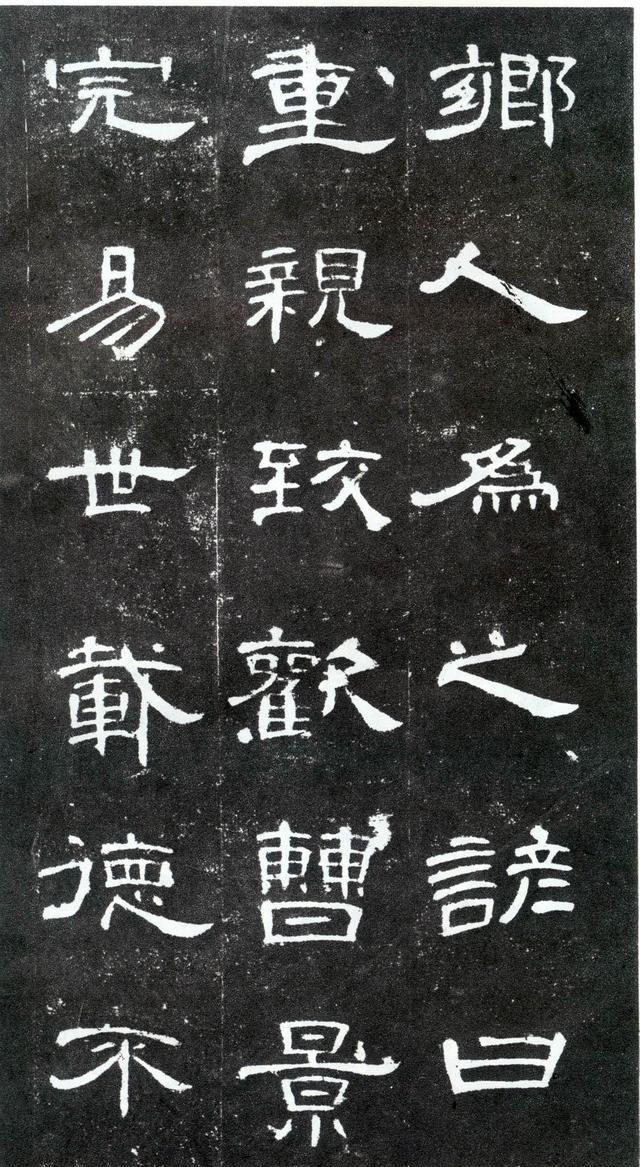 鄉人爲之諺曰
重親致歡曹景
完易世載德不